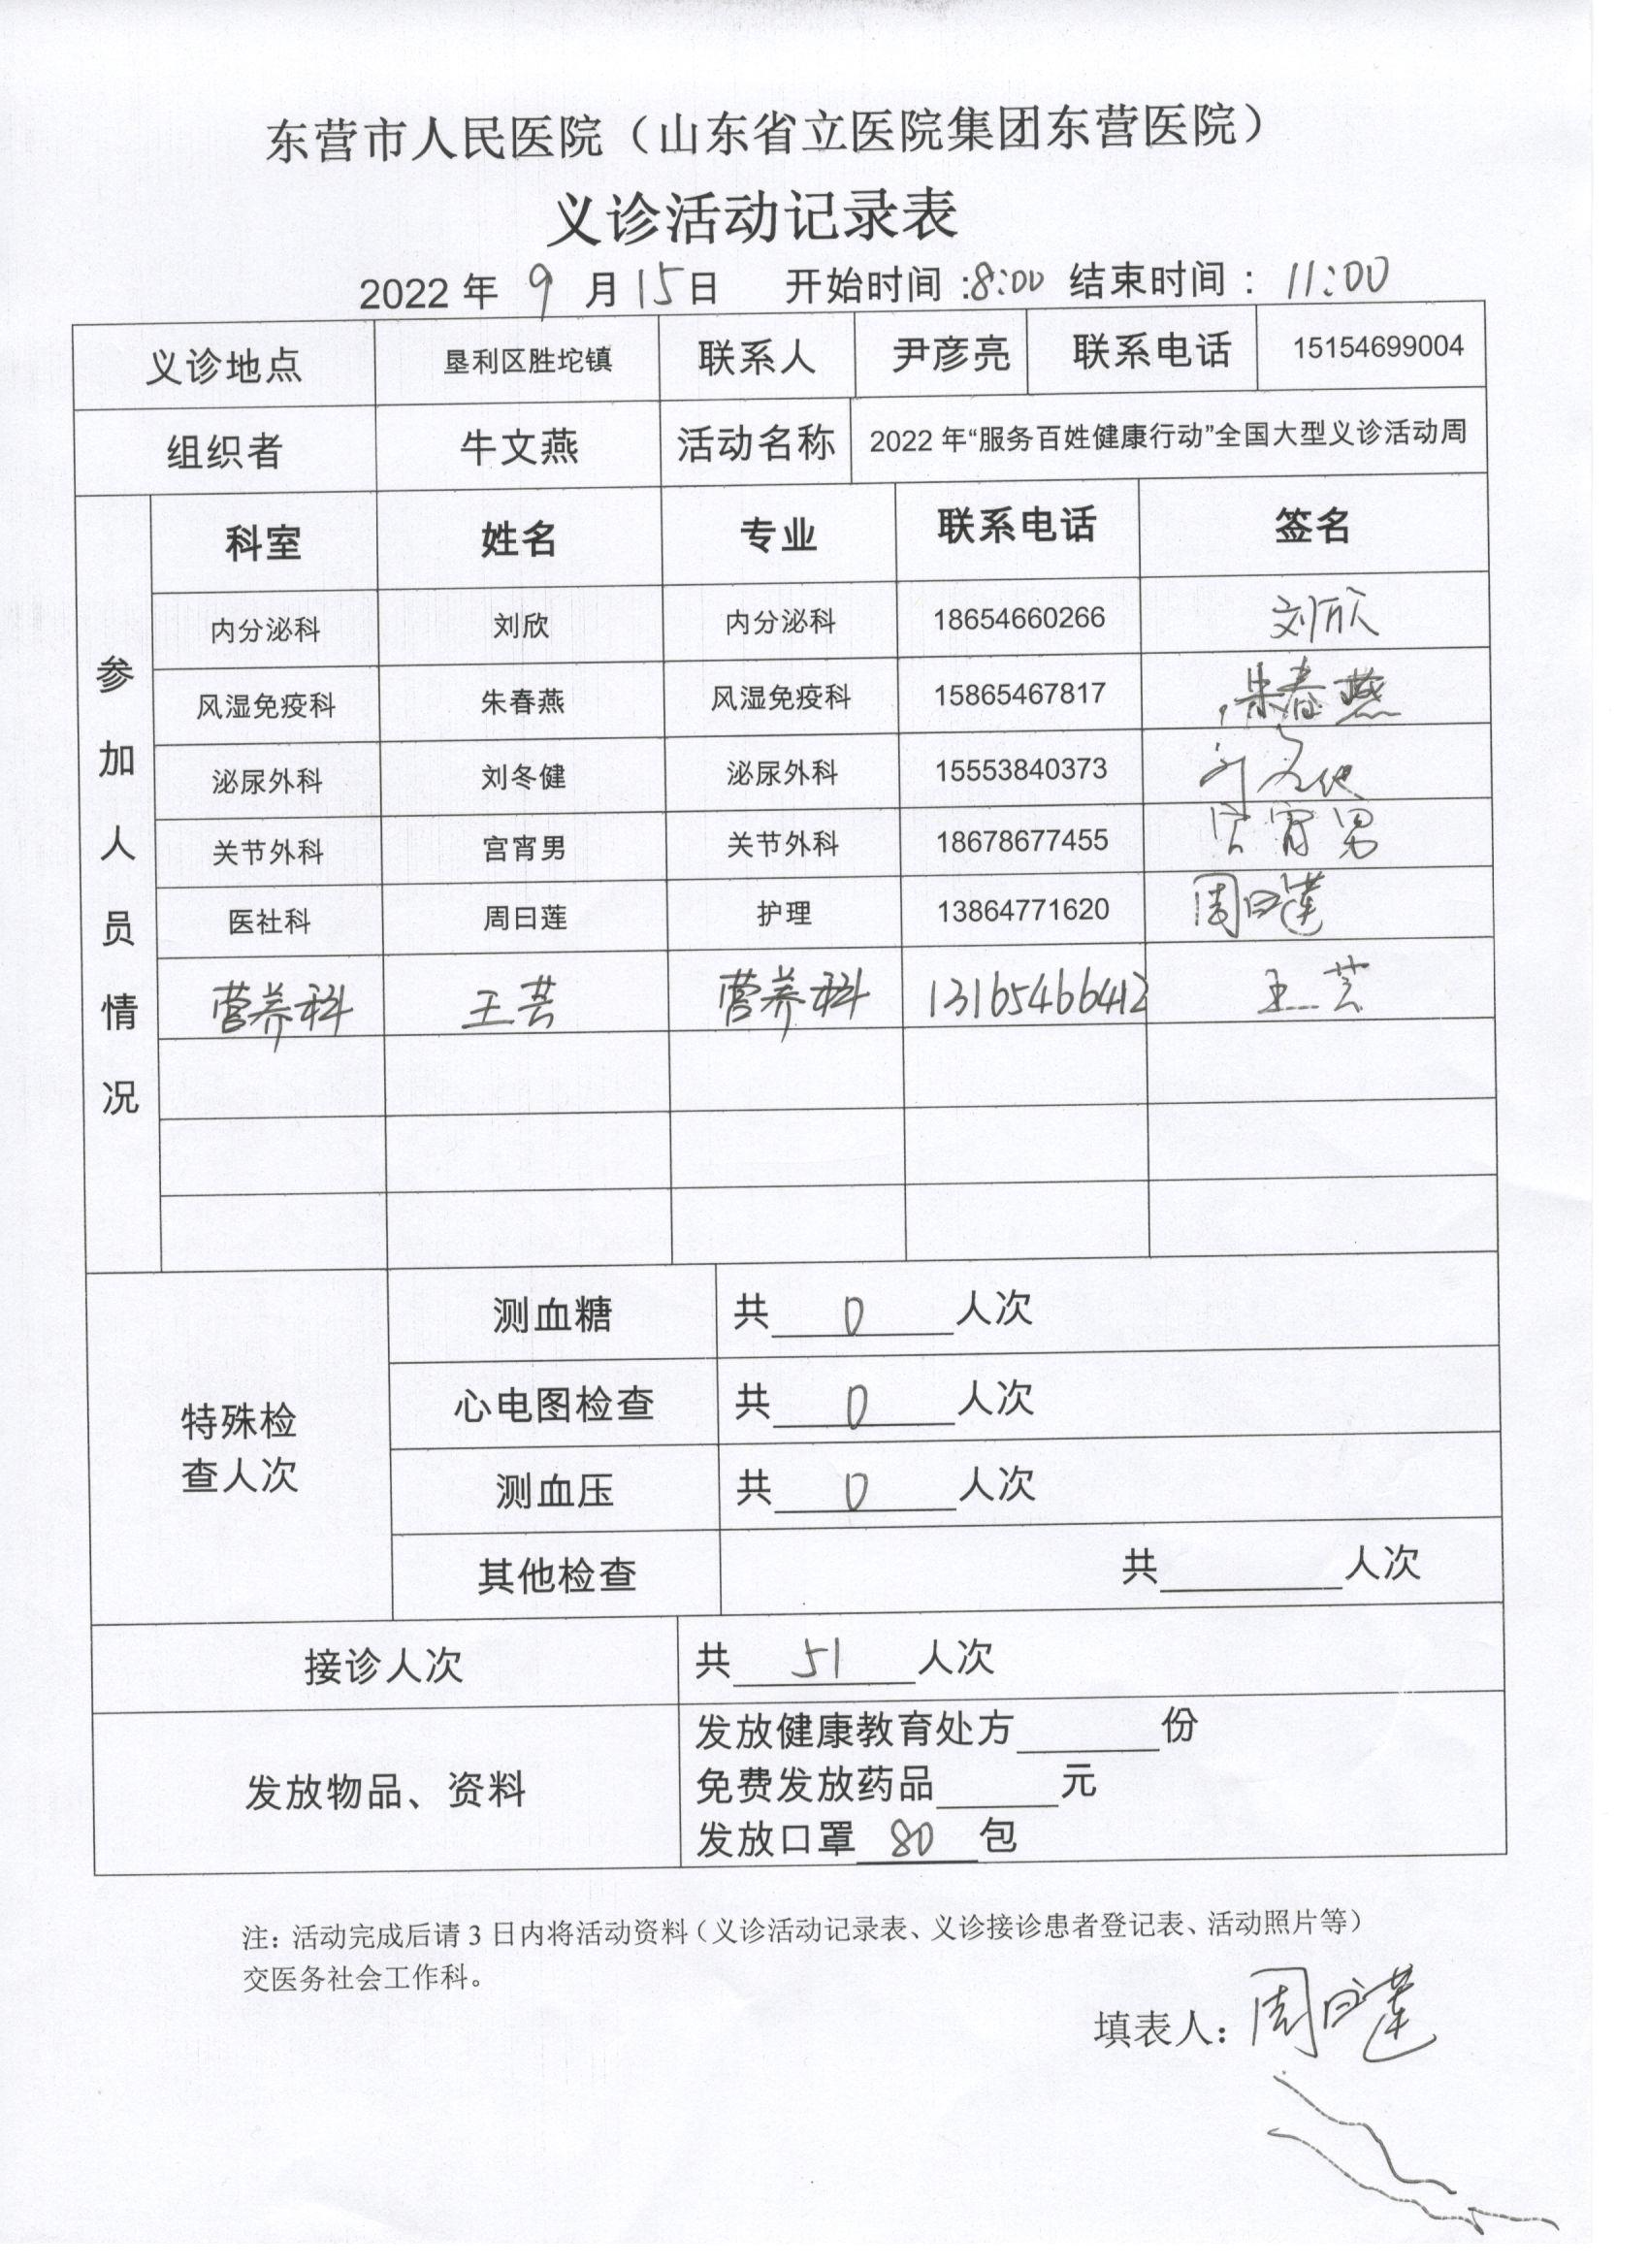 东营市人民医院（山东省立医院集团东营医院）
义诊活动记录表
2022 年 9 月 15 日 开始时间：8:00 结束时间：11:00
义诊地点 垦利区胜坨镇 联系人 尹彦亮 联系电话 15154699004
组织者 牛文燕 活动名称 2022 年“服务百姓健康行动”全国大型义诊活动周
参加人员情况
科室 姓名 专业 联系电话 签名
内分泌科 刘欣 内分泌科 18654660266 刘欣
风湿免疫科 朱春燕 风湿免疫科 15865467817 朱春燕
泌尿外科 刘冬健 泌尿外科 15553840373 刘冬健
关节外科 宫宵男 关节外科 18678677455 宫宵男
医社科 周曰莲 护理 13864771620 周曰莲
营养科 王芸 营养科 13165466412 王芸
特殊检查人次
测血糖 共 0 人次
心电图检查 共 0 人次
测血压 共 0 人次
其他检查 共 人次
接诊人次 共 51 人次
发放物品、资料
发放健康教育处方 份
免费发放药品 元
发放口罩 80 包
注：活动完成后请 3 日内将活动资料（义诊活动记录表、义诊接诊患者登记表、活动照片等）
交医务社会工作科。
填表人：周曰莲